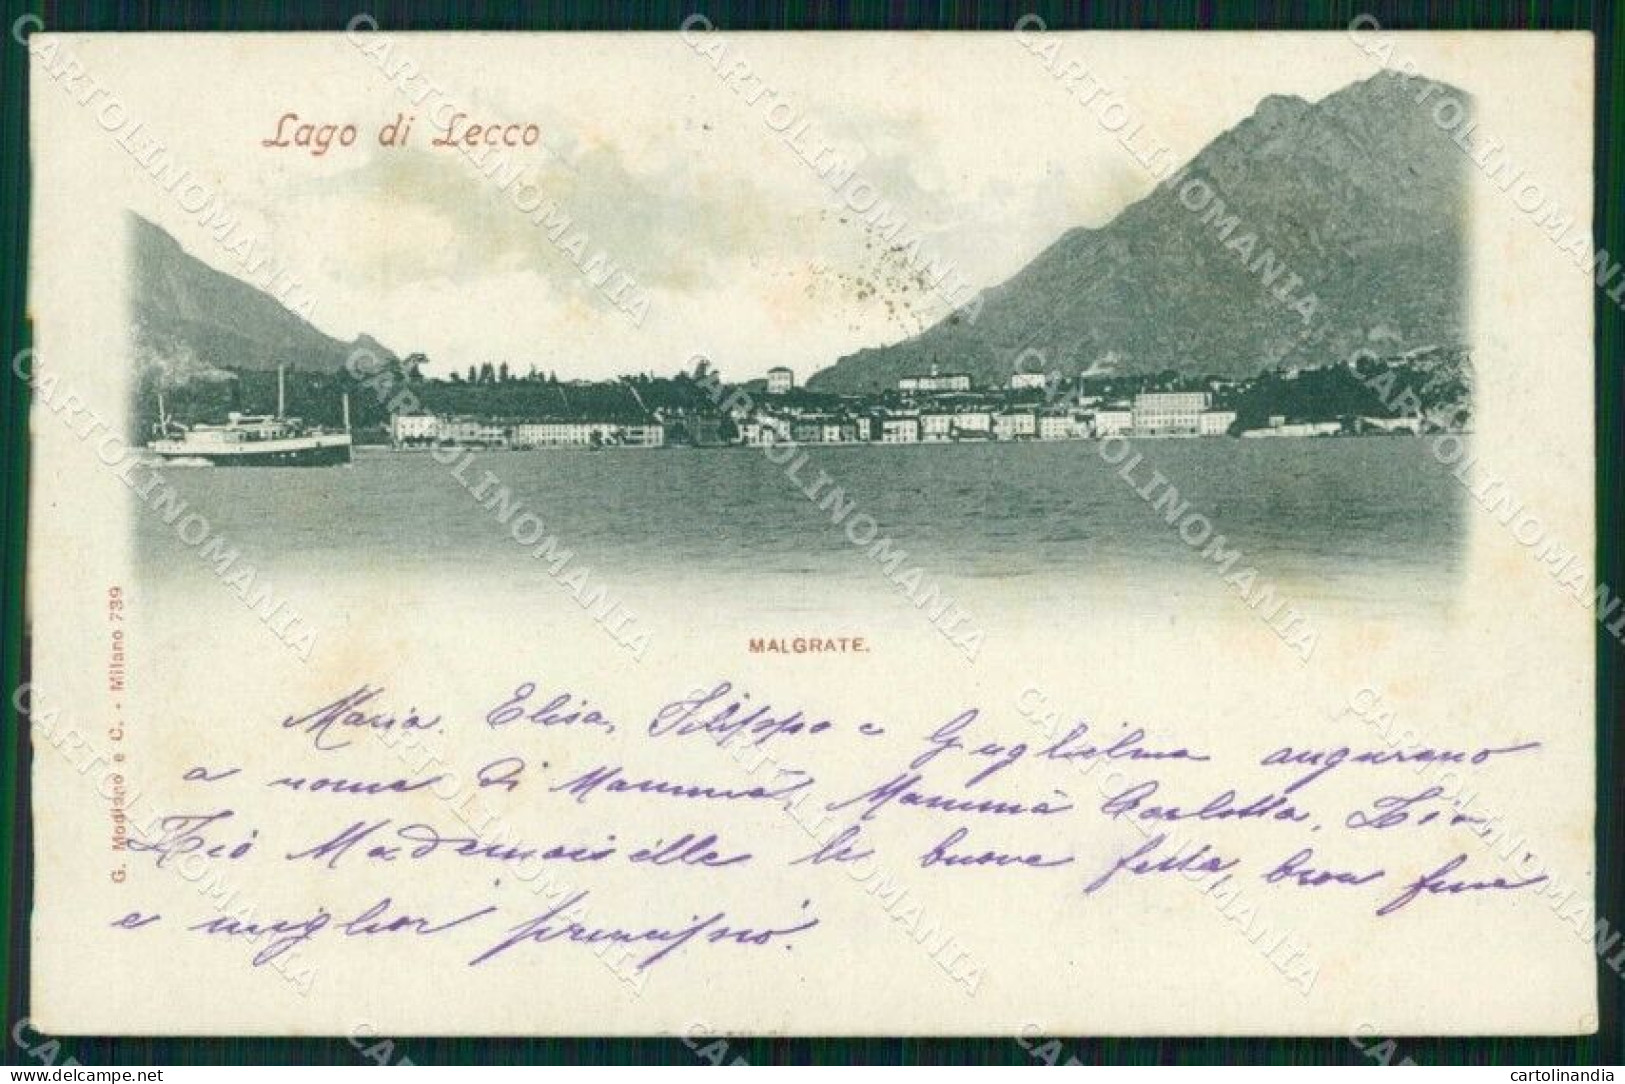 Lago di Lecco
MALGRATE.
G. Modiano e C. - Milano 739
Maria, Elisa, Filippo e Guglielma augurano
a nome di Mammà, Mammà Carlotta, Zia,
Zio Mademoiselle le buone festa, buon fine
e miglior principio.
CARTOLINOMANIA
cartolinandia